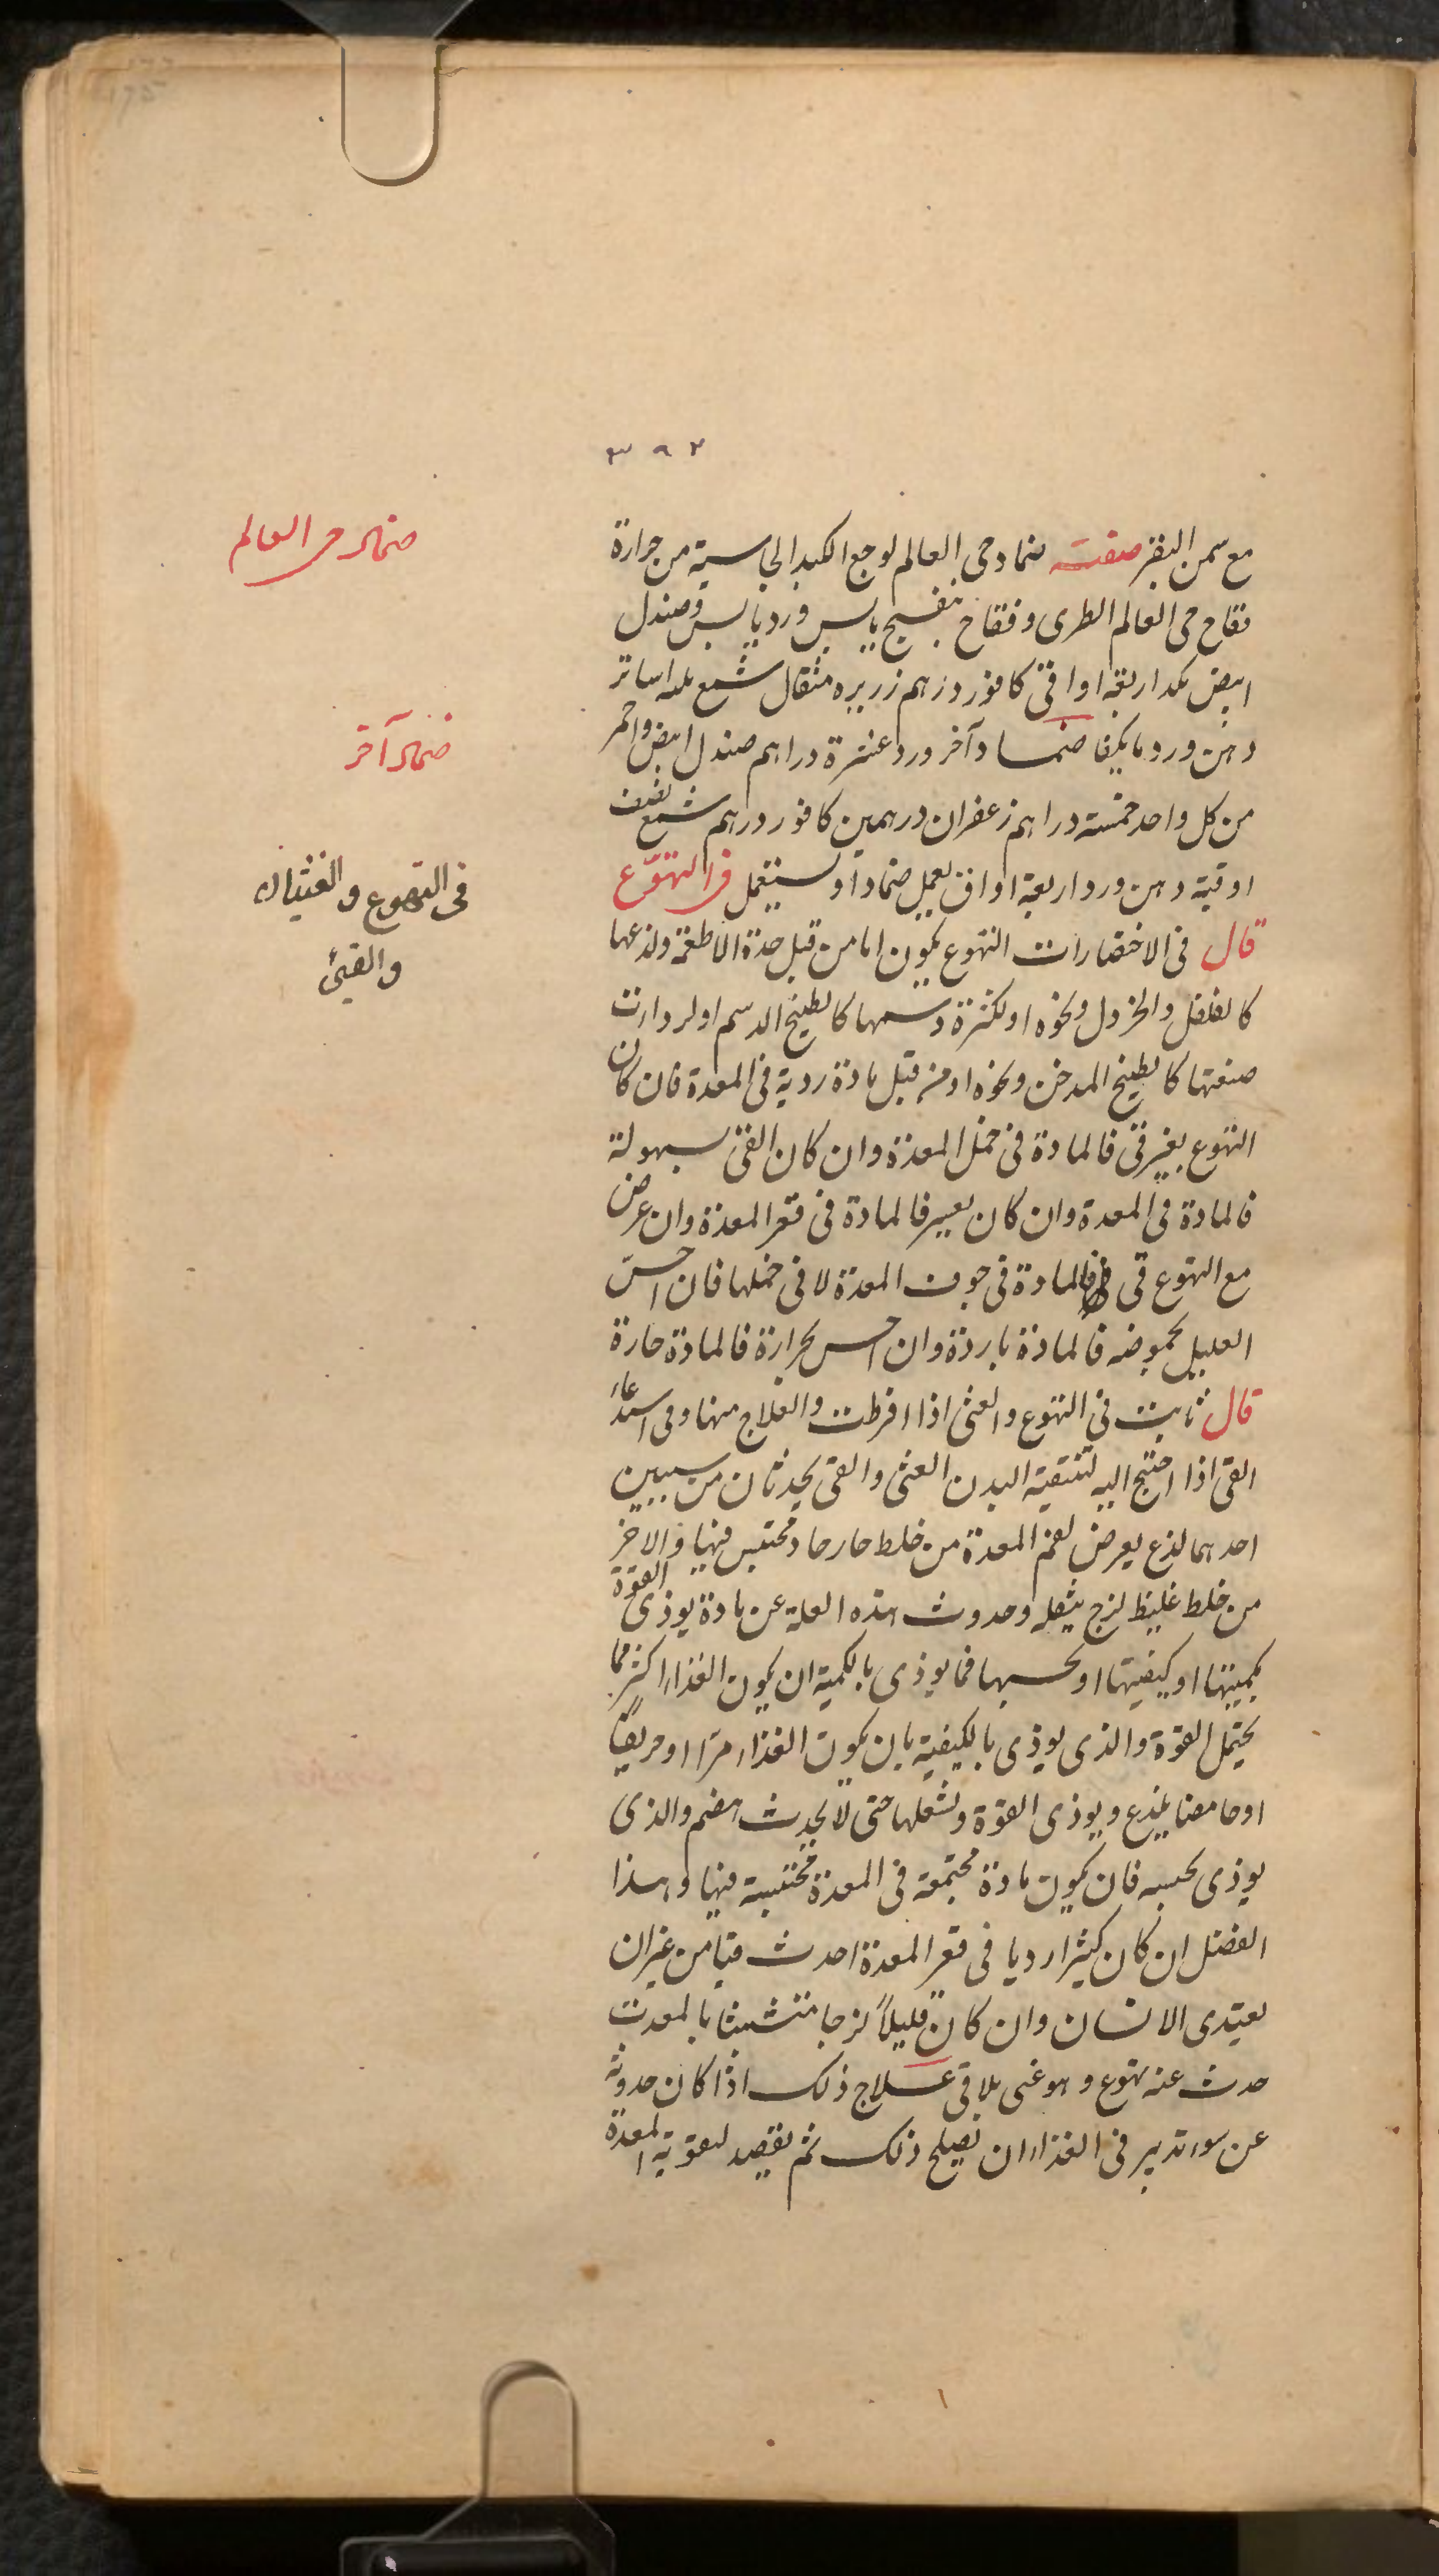 ٣٩٢
مع سمن البقر صفت ضماد حى العالم لوجع الكبد الجاسية من حرارة
فقاح حى العالم الطرى وفقاح بنفسج يابس ورد يابس وصندل
ابيض بكد اربعة اواقى كافور درهم زريره مثقال شمع اساتر
دهن ورد ما يكفا ضماد آخر ورد عشرة دراهم صندل ابيض واحمر
من كل واحد خمسة دراهم زعفران درهمين كافور درهم شمع نصف
اوقية دهن ورد اربعة اواق يعمل ضمادًا ويستعمل فى التهوّع
قال فى الاختصارات التهوع يكون اما من قبل حدة الاطعمة ولذعها
كالفلفل والخردل ونحوه او لكثرة دسمها كالطبيخ الدسم او لردات
صنعتها كالطبيخ المدخن ونحوه او من قبل مادة ردية فى المعدة فان كان
التهوع بغير قى فالمادة فى خمل المعدة وان كان القى بسهولة
فالمادة فى المعدة وان كان بعسر فالمادة فى قعر المعدة وان عرض
مع التهوع قى فالمادة فى جوف المعدة لا فى خملها فان احسّ
العليل بحموضه فالمادة باردة وان احس بحرارة فالمادة حارة
قال ثابت فى التهوع والغثى اذا افرطت والعلاج منها وفى استدعاء
القى اذا احتيج اليه لتنقية البدن الغثى والقى يحدثان من سببين
احدهما لذع يعرض لفم المعدة من خلط حار حاد محتبس فيها والاخر
من خلط غليظ لزج يثقله وحدوث هذه العلة عن مادة يوذى القوة
بكميتها او كيفيتها او بحسبها فما يوذى بالكمية ان يكون الغذاء اكثر مما
يحتمل القوة والذى يوذى بالكيفية بان يكون الغذاء مرّا او حريفًا
او حامضا يلذع ويوذى القوة ويشغلها حتى لا يحدث هضم والذى
يوذى بحسبه فان يكون مادة مجتمعة فى المعدة محتبسة فيها وهذا
الفضل ان كان كثيرا رديا فى قعر المعدة احدث قيا من غير ان
يعتدى الانسان وان كان قليلاً لزجا متشبثا بالمعدت
حدث عنه تهوع وهو غثى بلا قى علاج ذلك اذا كان حدوثه
عن سوء تدبير فى الغذاء ان يصلح ذلك ثم يقصد لتقوية المعدة
ضماد حى العالم
ضماد آخر
فى التهوع والغثيان
والقيئ